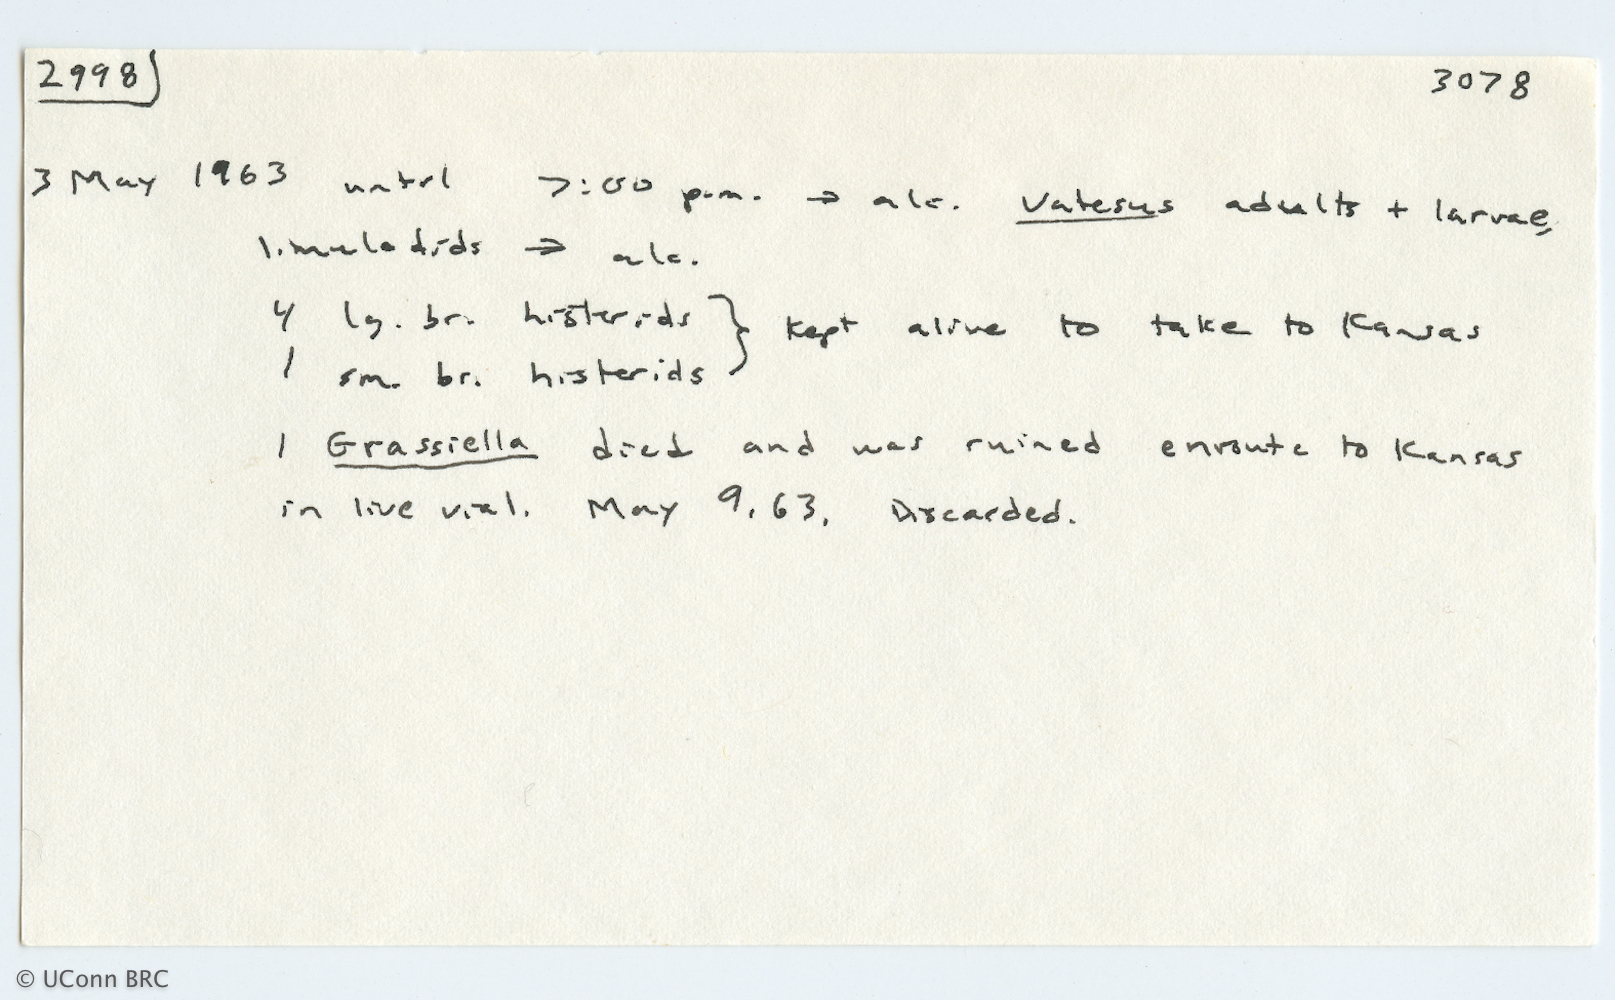 2998 3078
3 May 1963 until 7:00 p.m. → alc. Vatesus adults + larvae,
limulodids → alc.
4 lg. br. histerids } kept alive to take to Kansas
1 sm. br. histerids
1 Grassiella died and was ruined enroute to Kansas
in live vial. May 9, 63. Discarded.
© UConn BRC